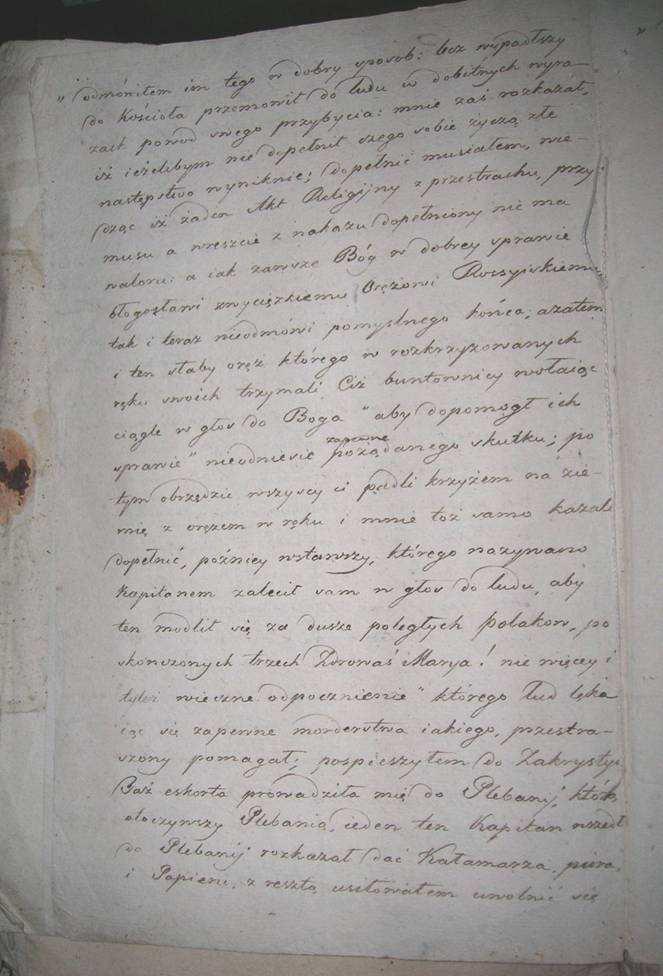 „ odmówiłem im tego w dobry sposób: lecz wypadłszy
do Kościoła przemowił do ludu w dobitnych wyra-
zach powod swego przybycia: mnie zaś rozkazał,
iż ieżelibym nie dopełnił czego sobie życzą złe
następstwo wyniknie; dopełnić musiałem, wie-
dząc iż żaden Akt Religijny z przestrachu, przy-
musu a wreszcie z nakazu dopełniony nie ma
waloru: a iak zawsze Bóg w dobrey sprawie
błogosławi zwycięzkiemu Orężowi Rossyiskiemu
tak i teraz nieodmówi pomyslnego końca; azatem
i ten słaby oręz którego w rozkrzyżowanych
ręku swoich trzymali Ciż buntownicy wołaiąc
ciągle w głos do Boga "aby dopomógł ich
sprawie" nieodniesie zapewne pożądanego skutku; po
tym obrzędzie wszyscy ci padli krzyżem na zie-
mię z orężem w ręku i mnie toż samo kazali
dopełnić, poźniey wstawszy, którego nazywano
Kapitanem zalecił sam w głos do ludu, aby
ten modlił się za dusze poległych polakow, po
skończonych trzech Zdrowaś Marya! nie więcey i
tyleż wieczne odpocznienie" którego lud lęka
iąc się zapewne morderstwa iakiego, przestra-
szony pomagał; pospieszyłem do Zakrystyi
Taż eskorta prowadziła mię do Plebanij, którą
otoczywszy Plebanią, ieden ten Kapitan wszedł
do Plebanij rozkazał dać Kałamarza, pióra
i Papieru, z resztą usiłowałem uwolnić się